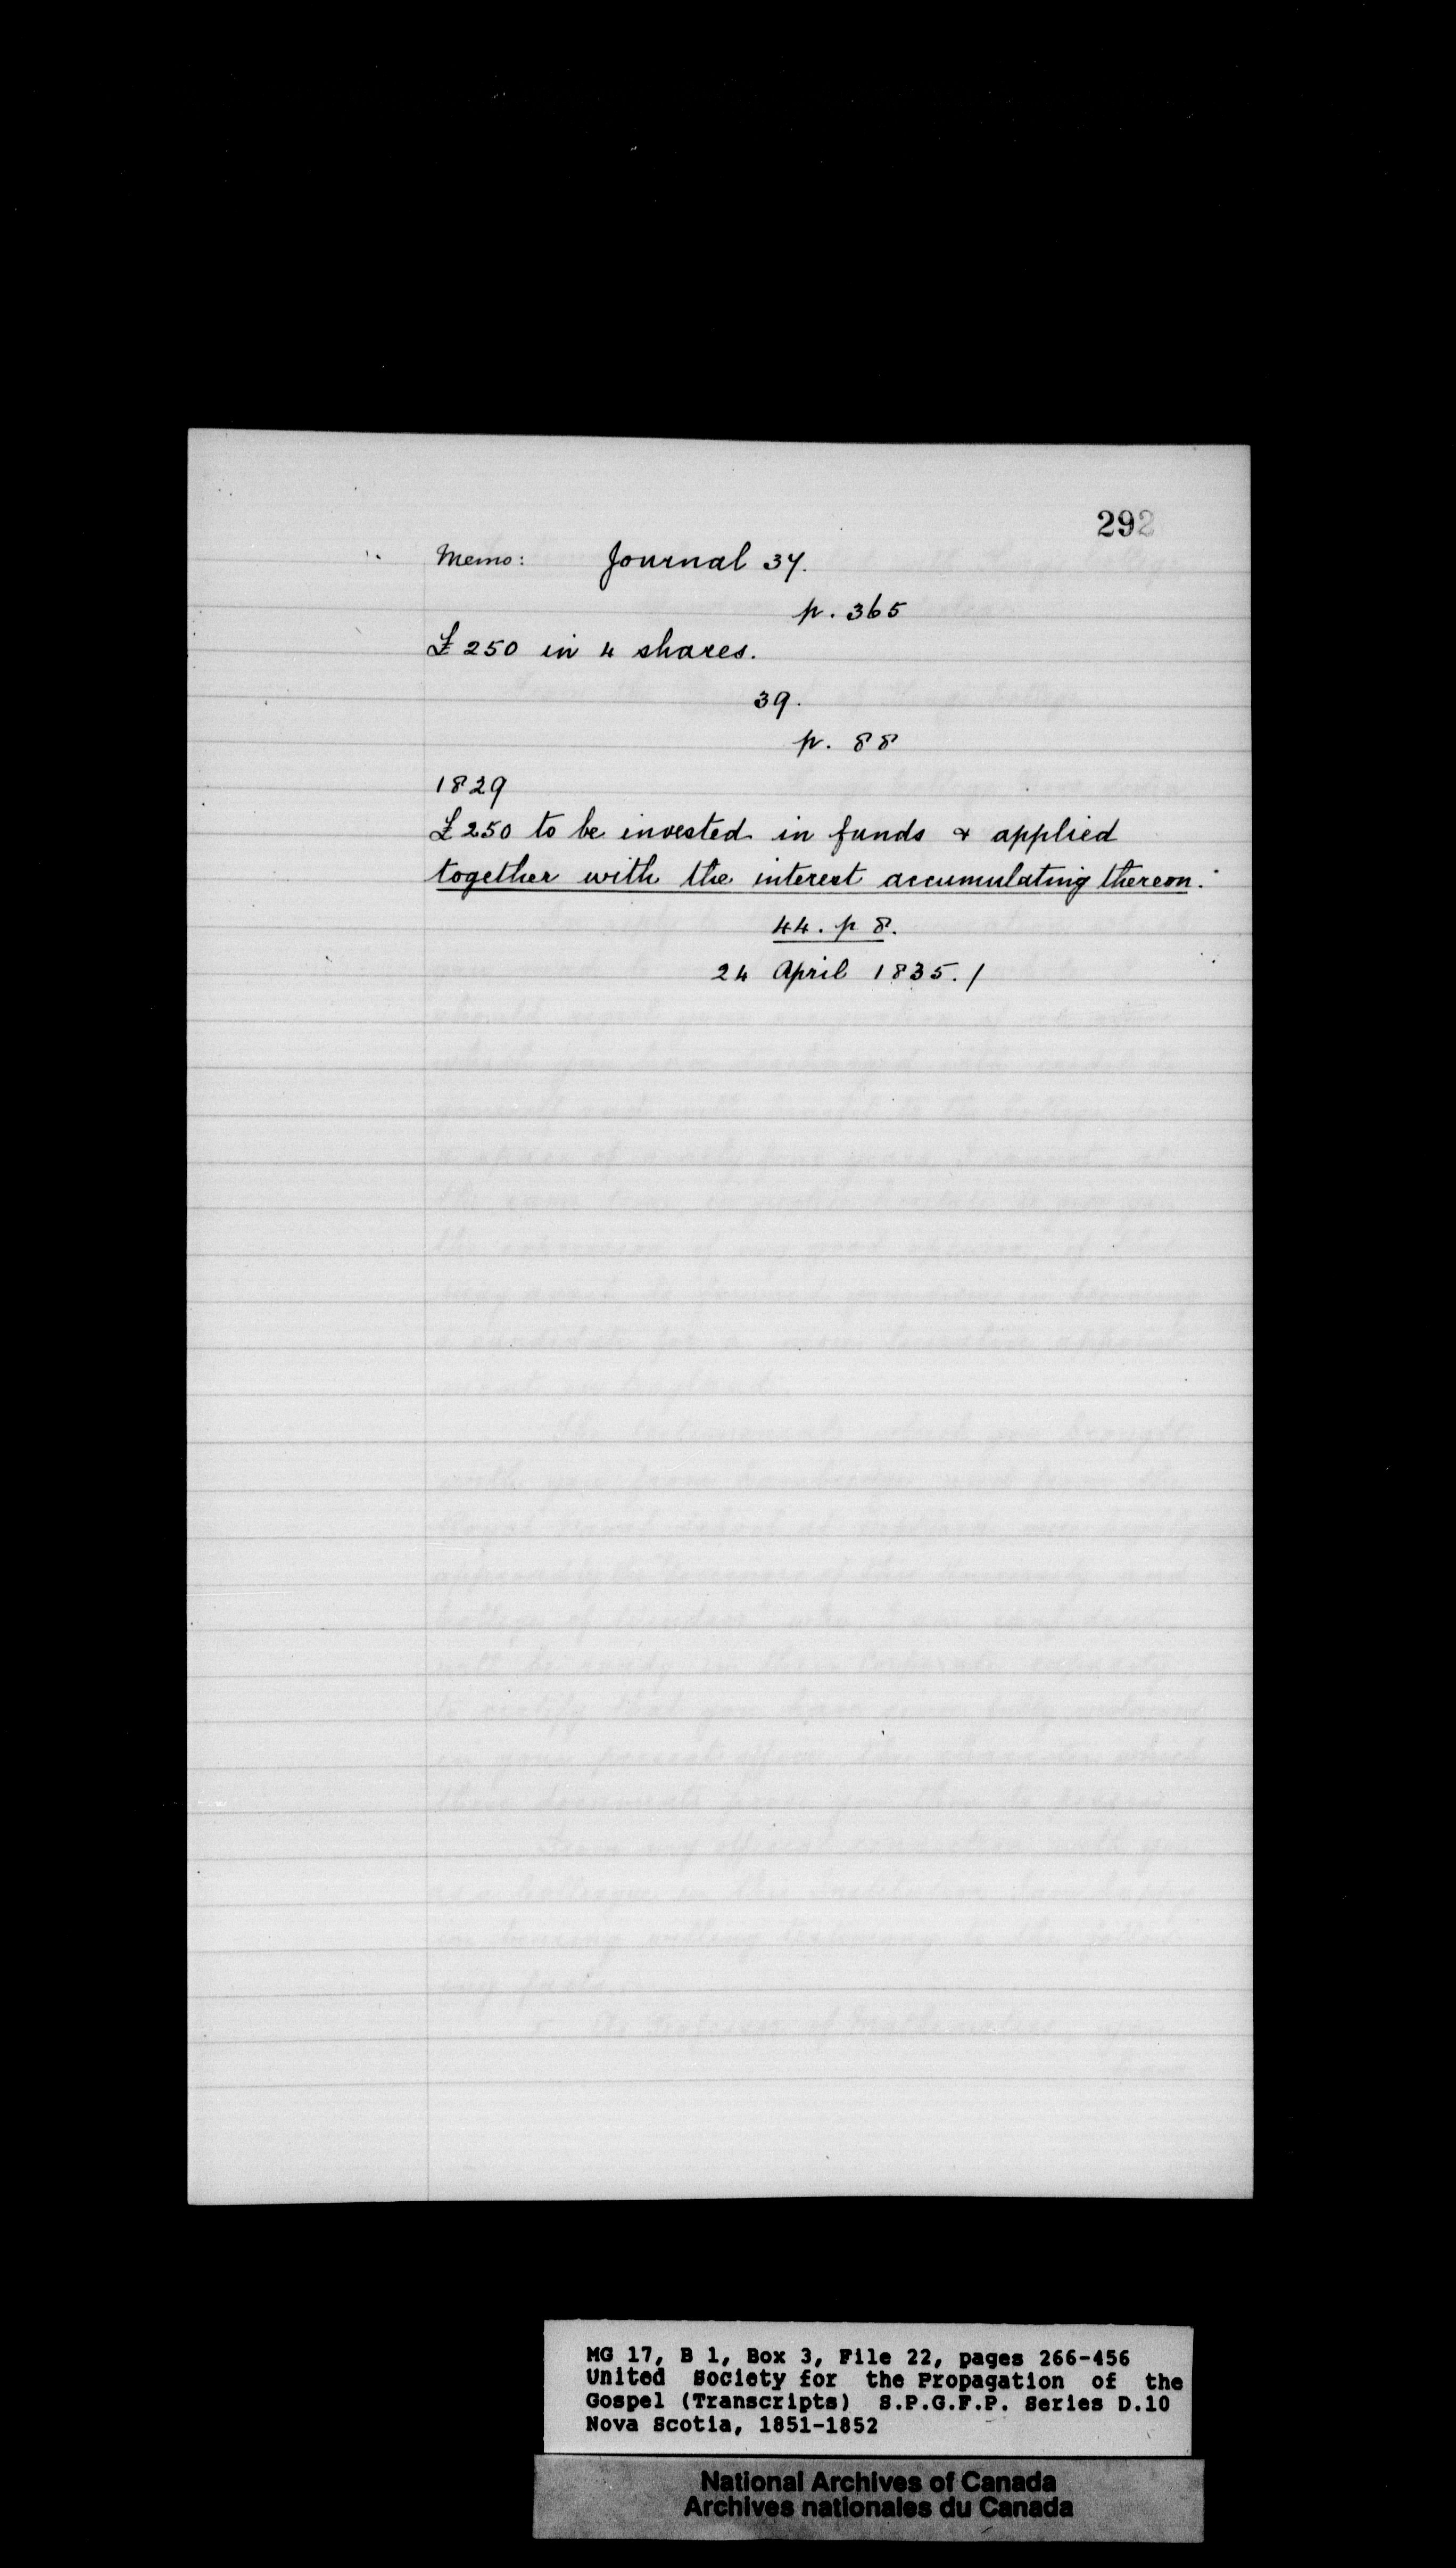 292
Memo: Journal 37.
p. 365
£250 in 4 shares.
39.
p. 88
1829
£250 to be invested in funds & applied
together with the interest accumulating thereon.
44. p 8.
24 April 1835./
MG 17, B 1, Box 3, File 22, pages 266-456
United Society for the Propagation of the
Gospel (Transcripts) S.P.G.F.P. Series D.10
Nova Scotia, 1851-1852
National Archives of Canada
Archives nationales du Canada